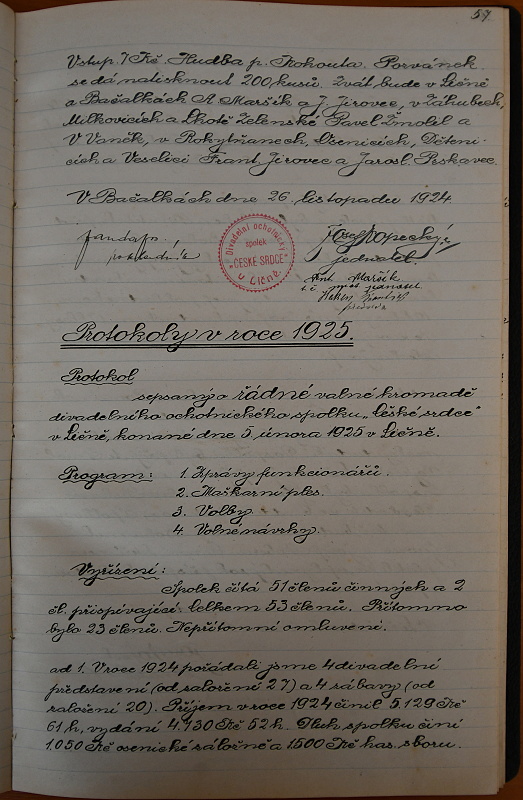 57
Vstup 7 Kč. Hudba p. Kohouta. Pozvánek
se dá natisknout 200 kusů. Zvát bude v Ličně
a Bačalkách A. Maršík a J. Jirovec, v Záhubech,
Milkovicích a Lhotě Zelenské Pavel Žmolil a
V. Vaněk, v Rokytňanech, Osenicích, Děteni-
cích a Veselici Frant. Jirovec a Jarosl. Peskavec.
V Bačalkách dne 26. listopadu 1924.
pokladník
Divadelní ochotnický
spolek
„ČESKÉ SRDCE"
v Ličně
Josef Kopecký
jednatel.
Ant. Maršík
předseda
Protokoly v roce 1925.
Protokol
sepsaný o řádné valné hromadě
divadelního ochotnického spolku „České srdce"
v Ličně, konané dne 5. února 1925 v Ličně.
Program: 1. Zprávy funkcionářů.
2. Maškarní ples.
3. Volby.
4. Volné návrhy.
Vyřízení:
Spolek čítá 51 členů činných a 2
čl. přispívající. Celkem 53 členů. Přítomno
bylo 23 členů. Nepřítomní omluveni.
ad 1. V roce 1924 pořádali jsme 4 divadelní
představení (od založení 27) a 4 zábavy (od
založení 20). Příjem v roce 1924 činil 5.129 Kč
61 h, vydání 4.730 Kč 52 h. Dluh spolku činí
1.050 Kč osenické záložně a 1500 Kč has. sboru.